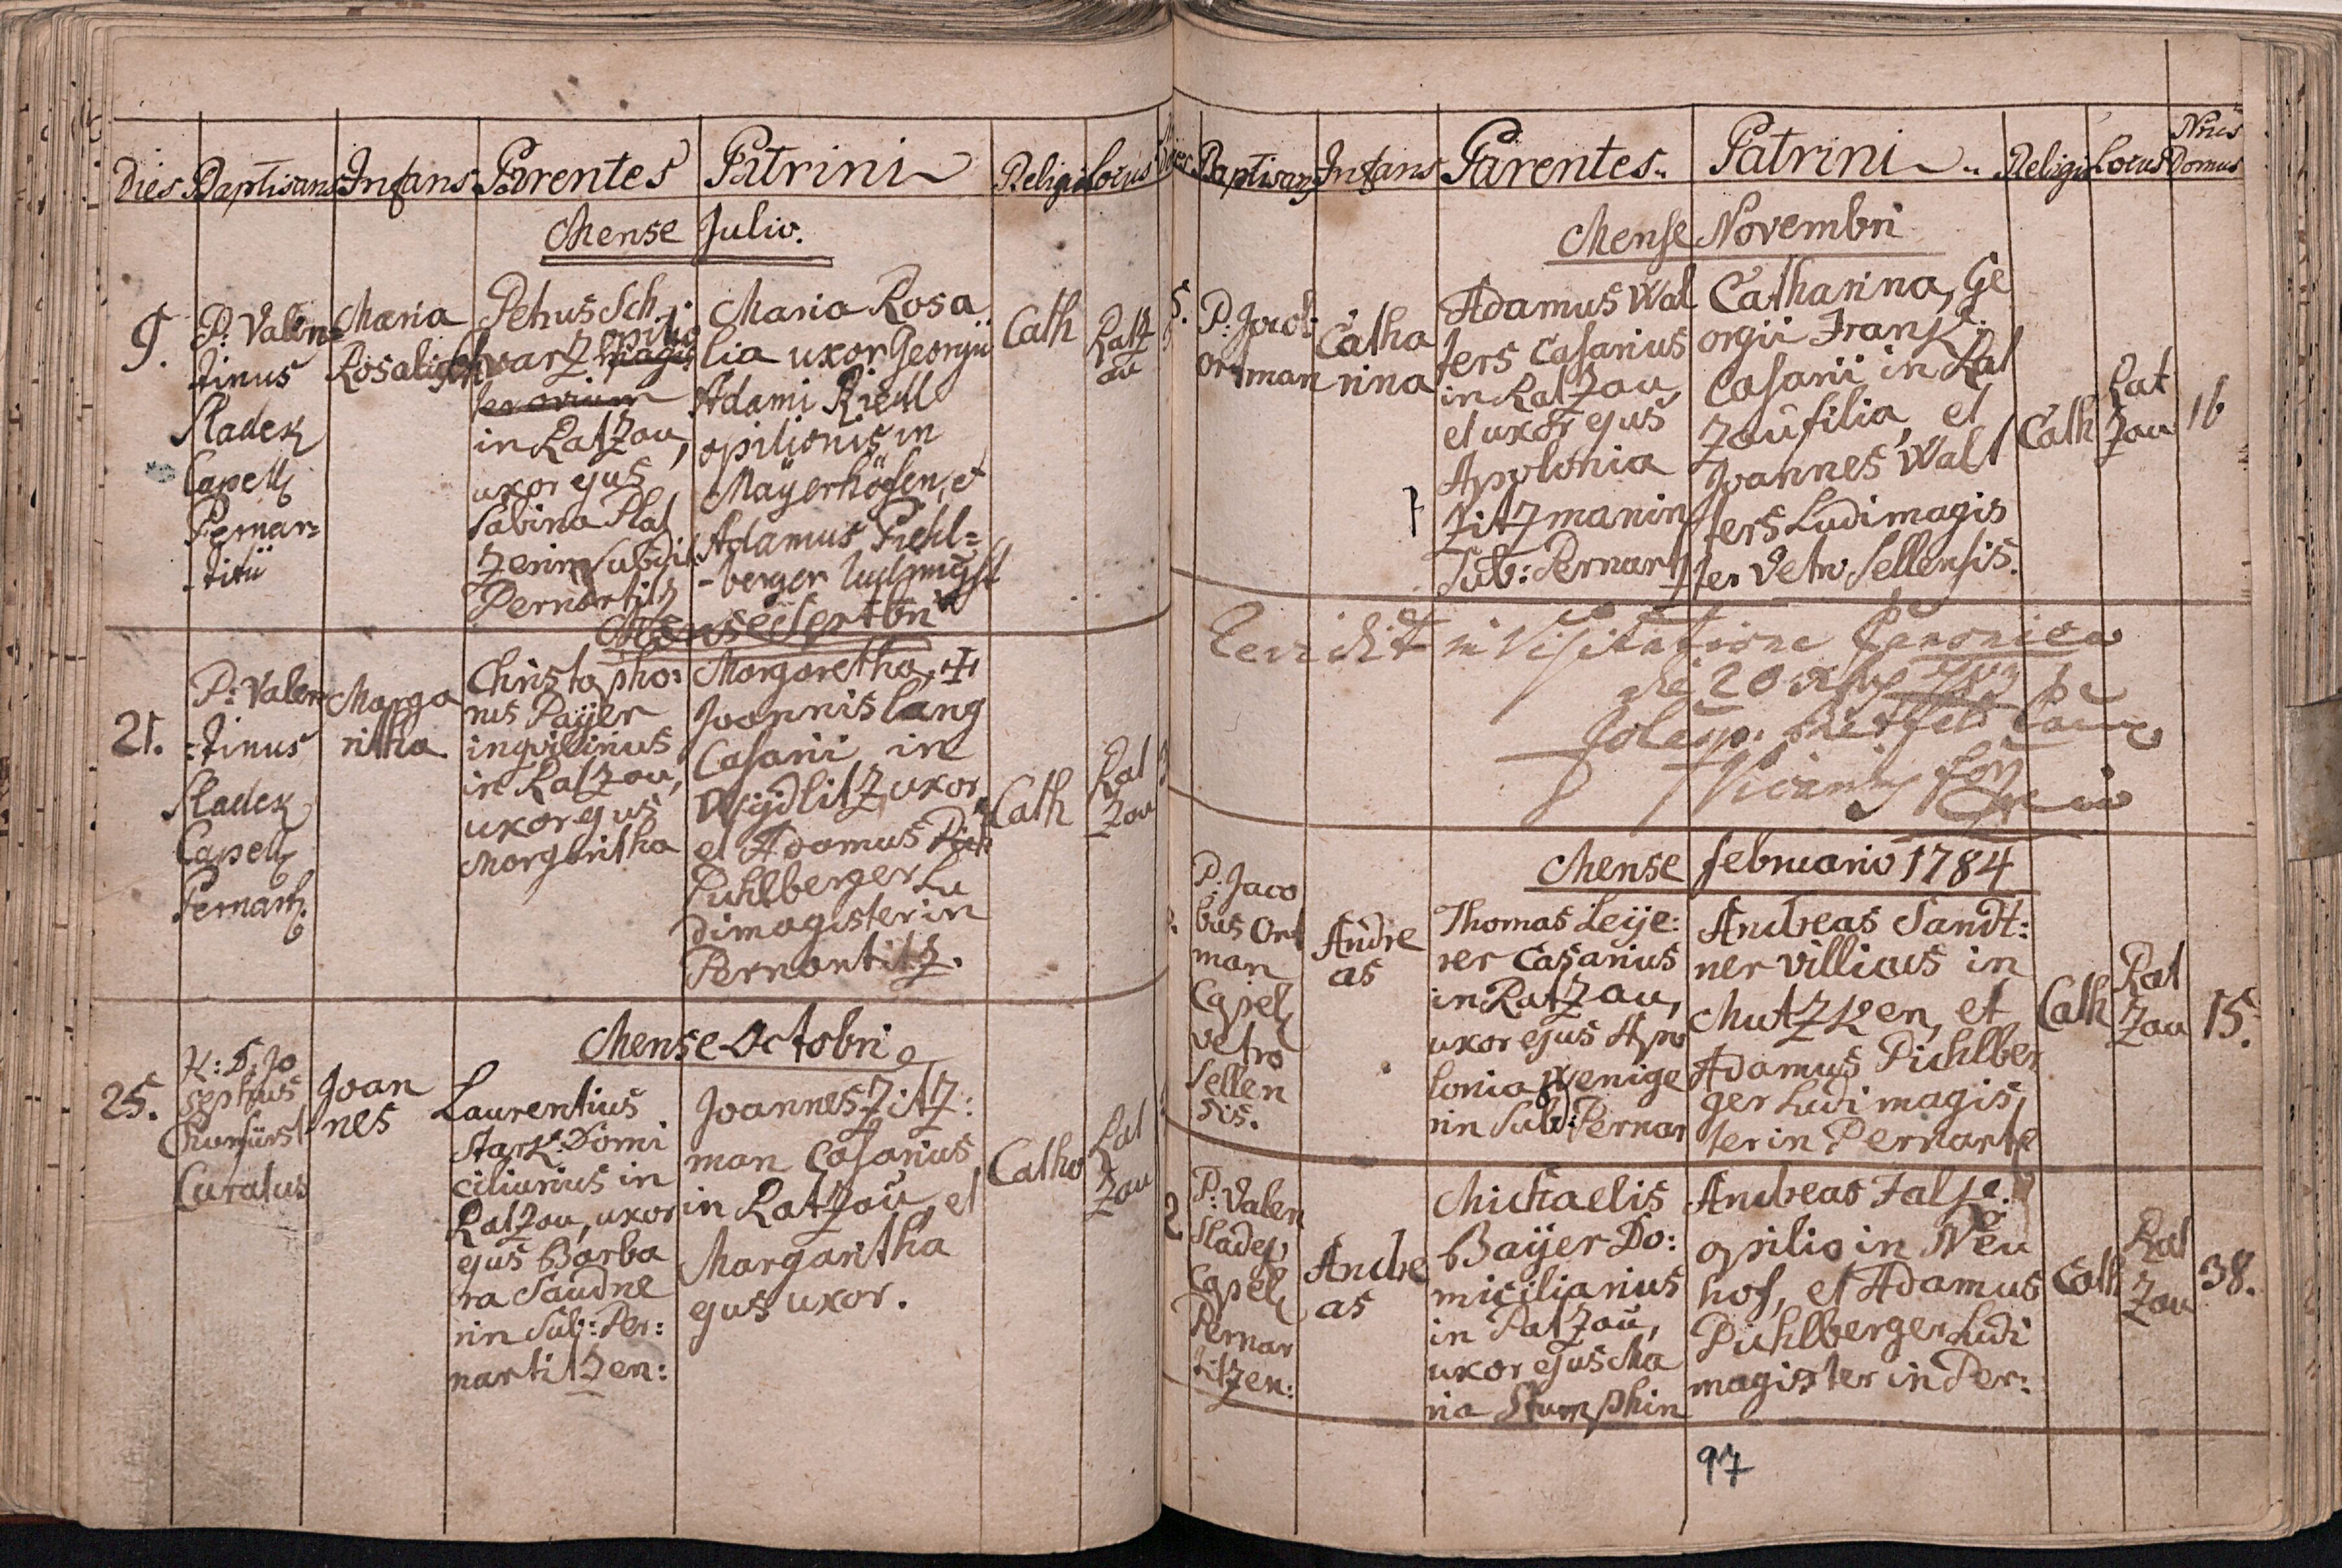 Dies Baptisans Infans Parentes Patrini Religio Locus
Mense Julio.
9.
P: Valen=
tinus
Sladek
Capell
Pernar=
titii
Maria
Rosalia
Petrus Sch
warz opilio
in Ratzau,
uxor ejus
Sabina Plat
zerin Subdit
Pernartitz
Maria Rosa
lia uxor Georgii
Adami Riedl
opilionis in
Mayerhöfen, et
Adamus Piehl=
-berger ludimgst
Cath
Ratz
au
Mense Septbri
21.
P: Valen
=tinus
Sladek
Capell
Pernart.
Marga
ritha
Christopho:
rus Payer
inquilinus
in Ratzau,
uxor ejus
Margaritha
Margaretha,
Joannis Lang
Casarii in
Wydlitz uxor,
et Adamus
Pichlberger Lu
dimagister in
Pernartitz.
Cath
Rat
zau
Mense Octobri
25.
H: D. Jo
sephus
Churfürst
Curatus
Joan
nes
Laurentius
Stark Domi
ciliarius in
Ratzau, uxor
ejus Barba
ra Saudne
rin Sub: Per:
nartitzen:
Joannes Zitz:
man Casarius
in Ratzau et
Margaritha
ejus uxor.
Catho
Rat
zau
Dies Baptisans Infans Parentes.. Patrini.. Religio Locus Nrus Domus
Mense Novembri
5.
P: Jacob
Ortman
Catha
rina
Adamus Wal
ters Casarius
in Ratzau,
et uxor ejus
Apolonia
Zitzmanin
Sub: Pernart
Catharina, Ge
orgii Frank
Casarii in Rat
zau filia, et
Joannes Walt
ters Ludimagis
ter Vetro Sellensis.
Cath
Rat
zau
16
Revidit in Visitatione Canonica
die 20
Mense februario 1784
P: Jaco
bus Ort
man
Capell
vetro
Sellen
sis.
Andre
as
Thomas Leye:
rer Casarius
in Ratzau,
uxor ejus Apo
lonia Wenige
rin Sub: Pernar
Andreas Sandt:
ner villicus in
Mutzken, et
Adamus Pichlber
ger Ludi magis
ter in Pernarte
Cath
Rat
zau
15.
2
P: Valen
Sladek
Capell
Pernar
titzen:
Andre
as
Michaelis
Bayer Do:
miciliarius
in Ratzau,
uxor ejus Ma
ria Stumphin
Andreas Falke
opilio in Neu
hof, et Adamus
Pichlberger Ludi
magister in Per:
Cath
Rat
zau
38.
97